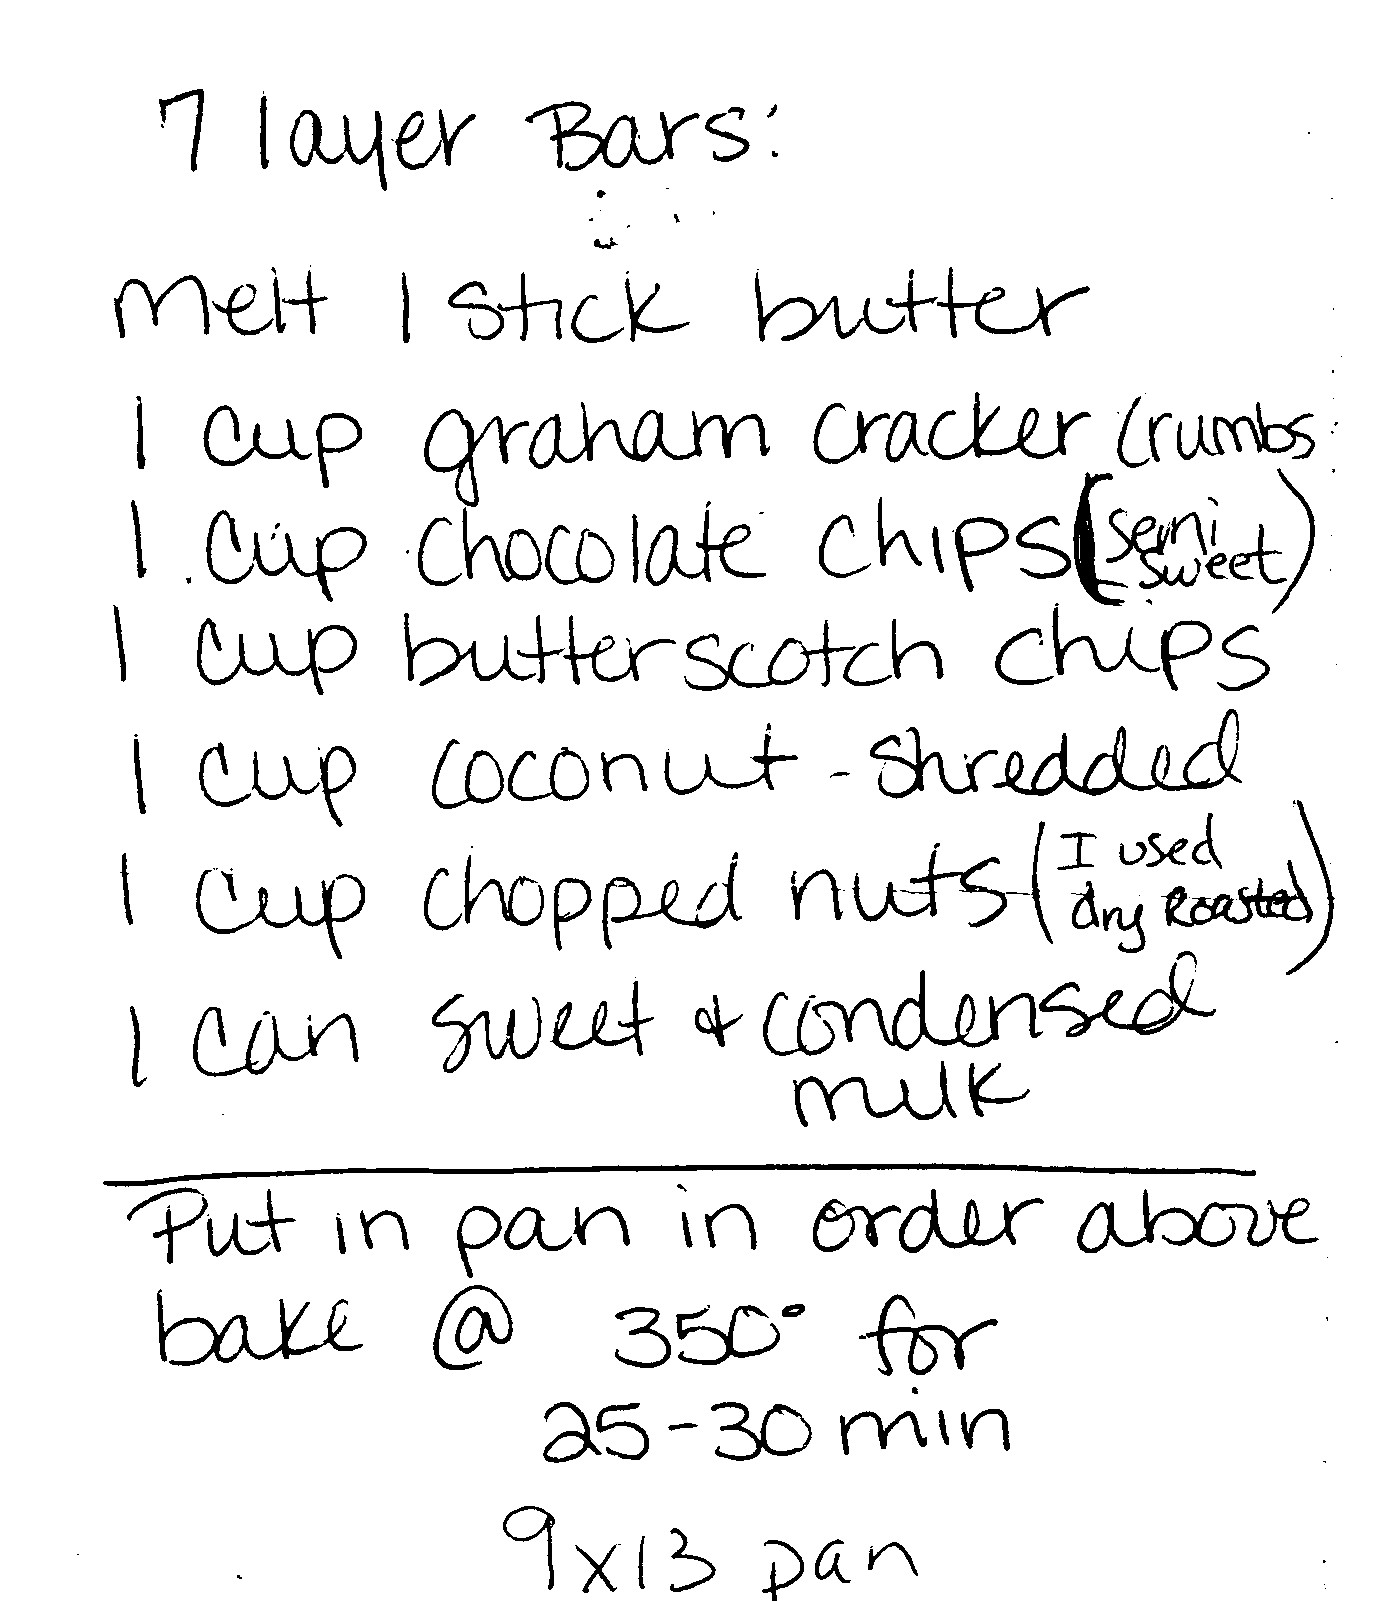 7 layer Bars:
Melt 1 stick butter
1 cup graham cracker crumbs
1 cup chocolate chips (semi sweet)
1 cup butterscotch chips
1 cup coconut - shredded
1 cup chopped nuts (I used dry Roasted)
1 can sweet & condensed
milk
Put in pan in order above
bake @ 350° for
25-30 min
9x13 pan